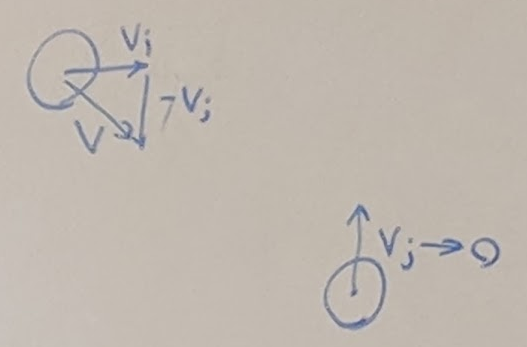 Vi
-Vj
V
Vj→0